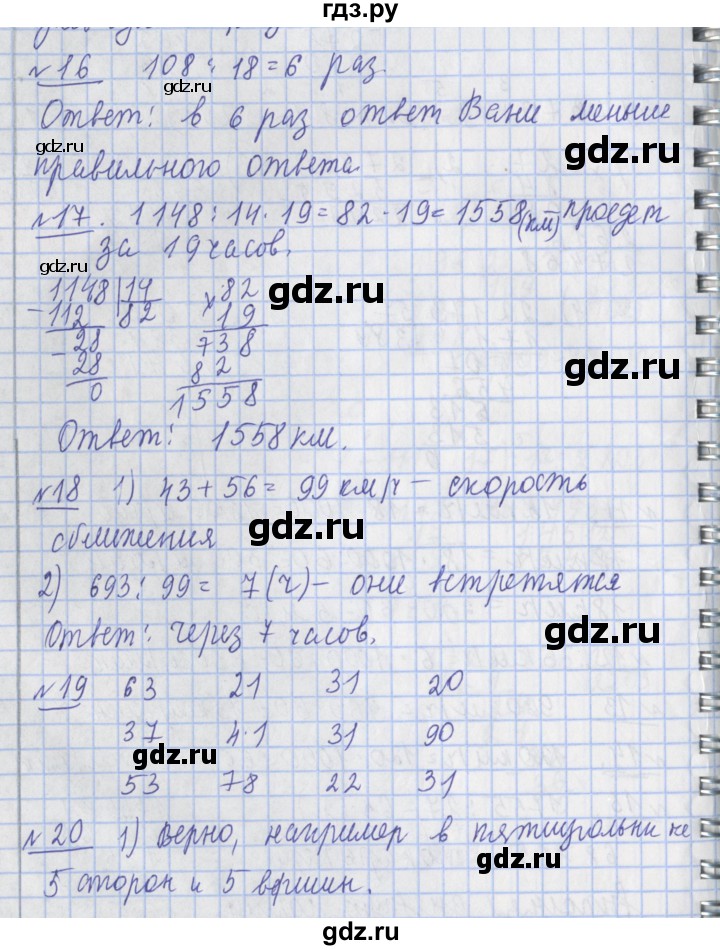 гдз.ру
№16 108 : 18 = 6 раз
gdz.ru
Ответ: в 6 раз ответ Вани меньше
gdz.ru
правильного ответа
gdz.ru
№17. 1148 : 14 · 19 = 82 · 19 = 1558 (км) проедет
за 19 часов.
gdz.ru
gdz.ru
1148 | 14 × 82
- 112 82 19
- 28 738
28 82
0 1558
gdz.ru
Ответ: 1558 км.
№18 1) 43 + 56 = 99 км/ч – скорость
gdz.ru
сближения
2) 693 : 99 = 7 (ч) – они встретятся
Ответ: через 7 часов.
gdz.ru
№19 63 21 31 20
37 4·1 31 90
gdz.ru
53 78 22 31
№20 1) Верно, например в пятиугольнике
gdz.ru
5 сторон и 5 вершин.